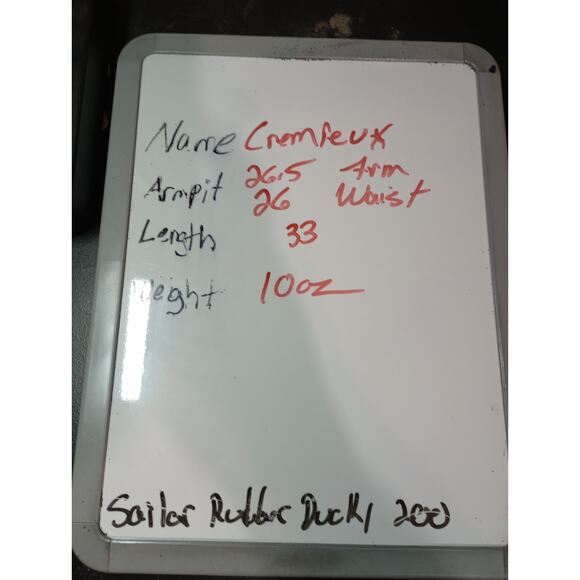 Name Cremieux
Armpit 26.5 Arm
26 Waist
Length 33
Weight 10oz
Sailor Rubber Ducky 200